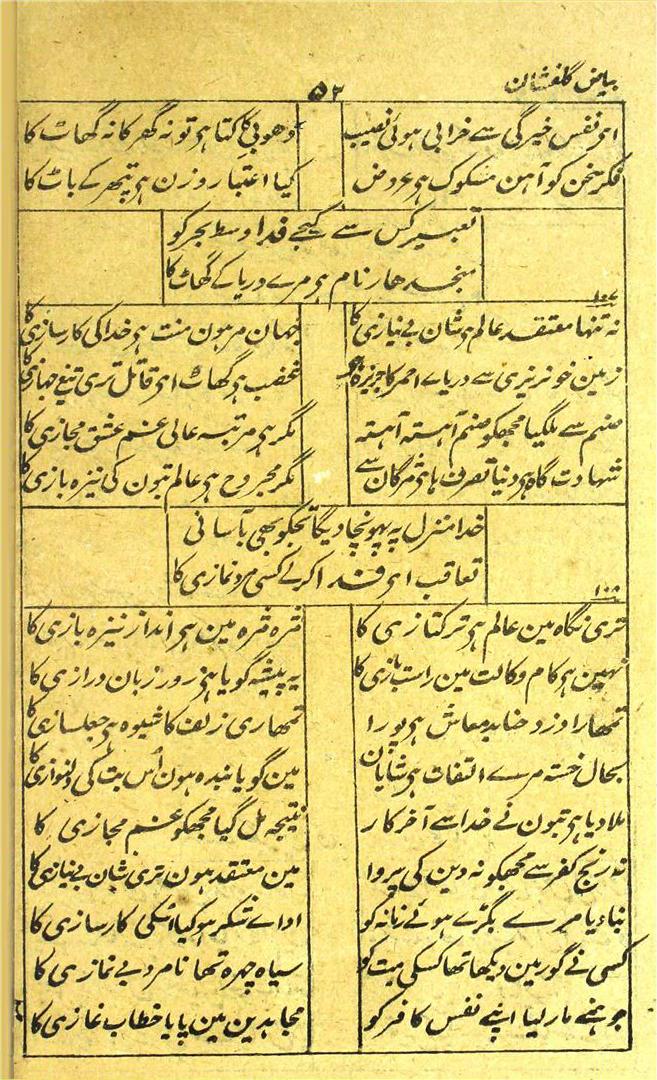 بیاض گلفشان
۵۲
ای نفس خیرگی سے خرابی ہوئی نصیب
دھوبی کا کتا ہی تو نہ گھر کا نہ گھاٹ کا
فکر سخن کو آہن مسکوک ہی عروض
کیا اعتبار وزن ہی پتھر کے باٹ کا
تعبیر کس سے کیجے فدا وسط بحر کو
منجدھار نام ہی مرے دریا کے گھاٹ کا
۱۰۷
نہ تنہا معتقد عالم ہی شان بے نیازی کا
جہان مرہون منت ہی خدا کی کارسازی کا
زمین خونریزی سے دریاے احمر کا جزیرہ ہی
غضب ہی گھاٹ ای قاتل تری تیغ جہازی کا
صنم سے ملگیا مجھکو صنم آہستہ آہستہ
مگر ہی مرتبہ عالی غم عشق مجازی کا
شہادت گاہ ہی دنیا تصرف ہاے مژگان سے
مگر مجروح ہی عالم بتون کی نیزہ بازی کا
خدا منزل پہ پہونچا دیگا تجکو بھی بآسانی
تعاقب ای فدا کر لے کسی مرد نمازی کا
۱۰۸
تری نگاہ مین عالم ہی ترکتازی کا
مژہ مژہ مین ہی انداز نیزہ بازی کا
نہین ہی کام وکالت مین راست بازی کا
یہ پیشہ گویا ہی زور زبان درازی کا
تمھارا دزد حنا بدمعاش ہی پورا
تمھاری زلف کا شیوہ ہی جعلسازی کا
بحال خستہ مرے التفات ہی شایان
مین گویا بندہ ہون اُس بت کی دلنوازی کا
ملا دیا ہی بتون نے خدا سے آخر کار
نتیجہ مل گیا مجھکو غم مجازی کا
نہ رنج کفر سے مجھکو نہ دین کی پروا
مین معتقد ہون تری شان بے نیازی کا
بنا دیا مرے بگڑے ہوئے زمانہ کو
اداے شکر ہو کیا اسکی کارسازی کا
کسی نے گور مین دیکھا تھا کسکی میت کو
سیاہ چہرہ تھا نامرد بے نمازی کا
جو ہمنے مار لیا اپنے نفس کافر کو
مجاہدین مین پایا خطاب غازی کا